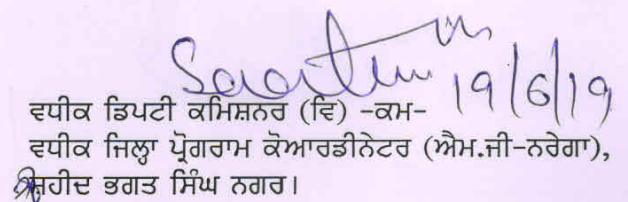 19/6/19
ਵਧੀਕ ਡਿਪਟੀ ਕਮਿਸ਼ਨਰ (ਵਿ) -ਕਮ-
ਵਧੀਕ ਜਿਲ੍ਹਾ ਪ੍ਰੋਗਰਾਮ ਕੋਆਰਡੀਨੇਟਰ (ਐਮ.ਜੀ-ਨਰੇਗਾ),
ਸ਼ਹੀਦ ਭਗਤ ਸਿੰਘ ਨਗਰ।